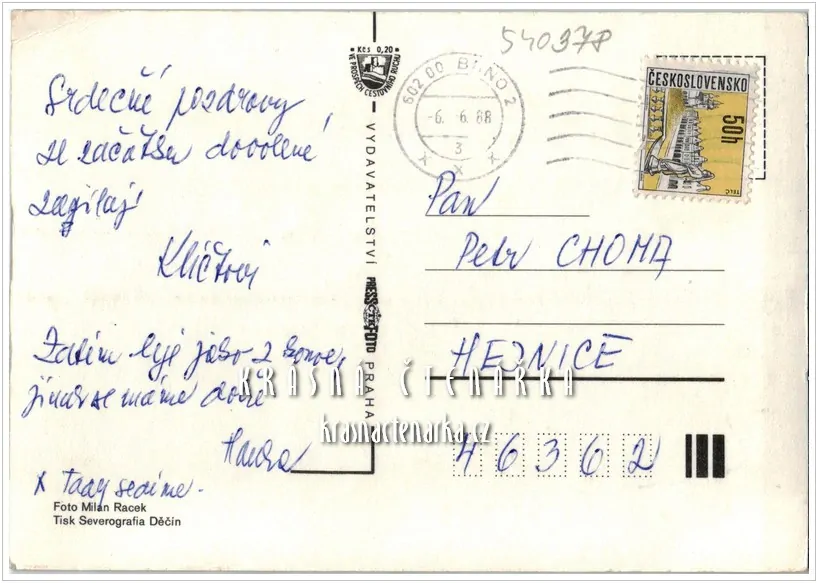 540378
Kčs 0,20
VE PROSPĚCH CESTOVNÍHO RUCHU
602 00 BRNO 2
-6. 6. 88
3
ČESKOSLOVENSKO
50h
TELČ
Srdečné pozdravy
ze začátku dovolené
zasílají
Zatím leje jako z konve,
jinak se máme dobře
Hanka
x Tady sedíme.
Foto Milan Racek
Tisk Severografia Děčín
VYDAVATELSTVÍ PRESSFOTO PRAHA
Pan
Petr CHOMA
HEJNICE
46362
KRÁSNÁ ČTENÁŘKA
krasnactenarka.cz